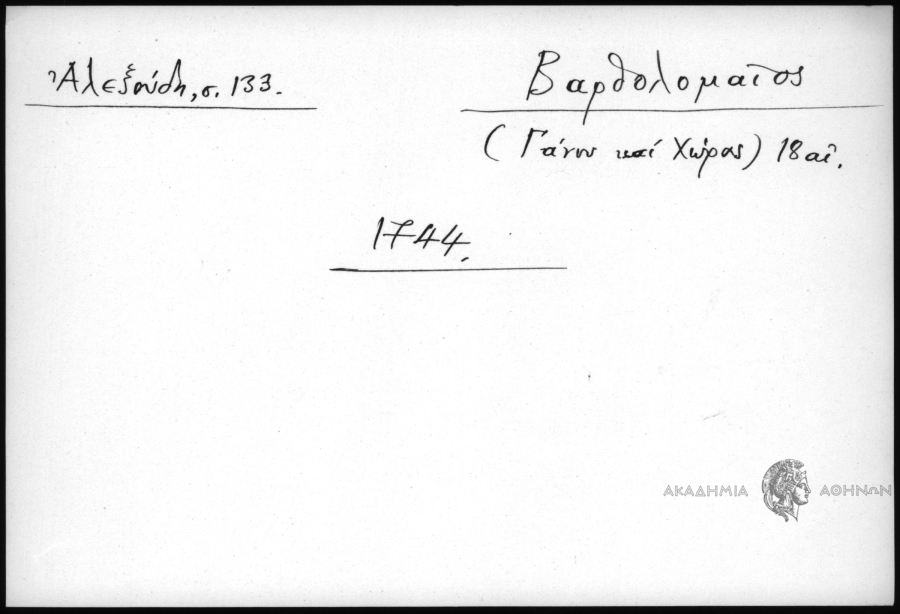 Ἀλεξούδη, σ. 133.
Βαρθολομαῖος
(Γάνου καί Χώρας) 18 αἰ.
1744.
ΑΚΑΔΗΜΙΑ ΑΘΗΝΩΝ